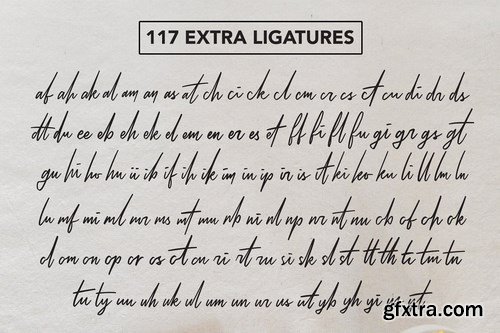 117 EXTRA LIGATURES
af ah ak al am an as at ch ci ck cl cm cr cs ct cu di dr ds
dt du ee eb eh ek el em en er es et ff fi fl fu gi gr gs gt
gu hi ho hu ii ib if ih ik im in ip ir is it ki ko ku li ll lm ln
lu mf mi ml mr ms mt mu nb ni nl np nr nt nu ob of oh ok
ol om on op or os ot ou ri rt ru si sk sl st tt th ti tm tn
tu ty uu uh uk ul um un ur us ut yb yh yi
gfxtra.com